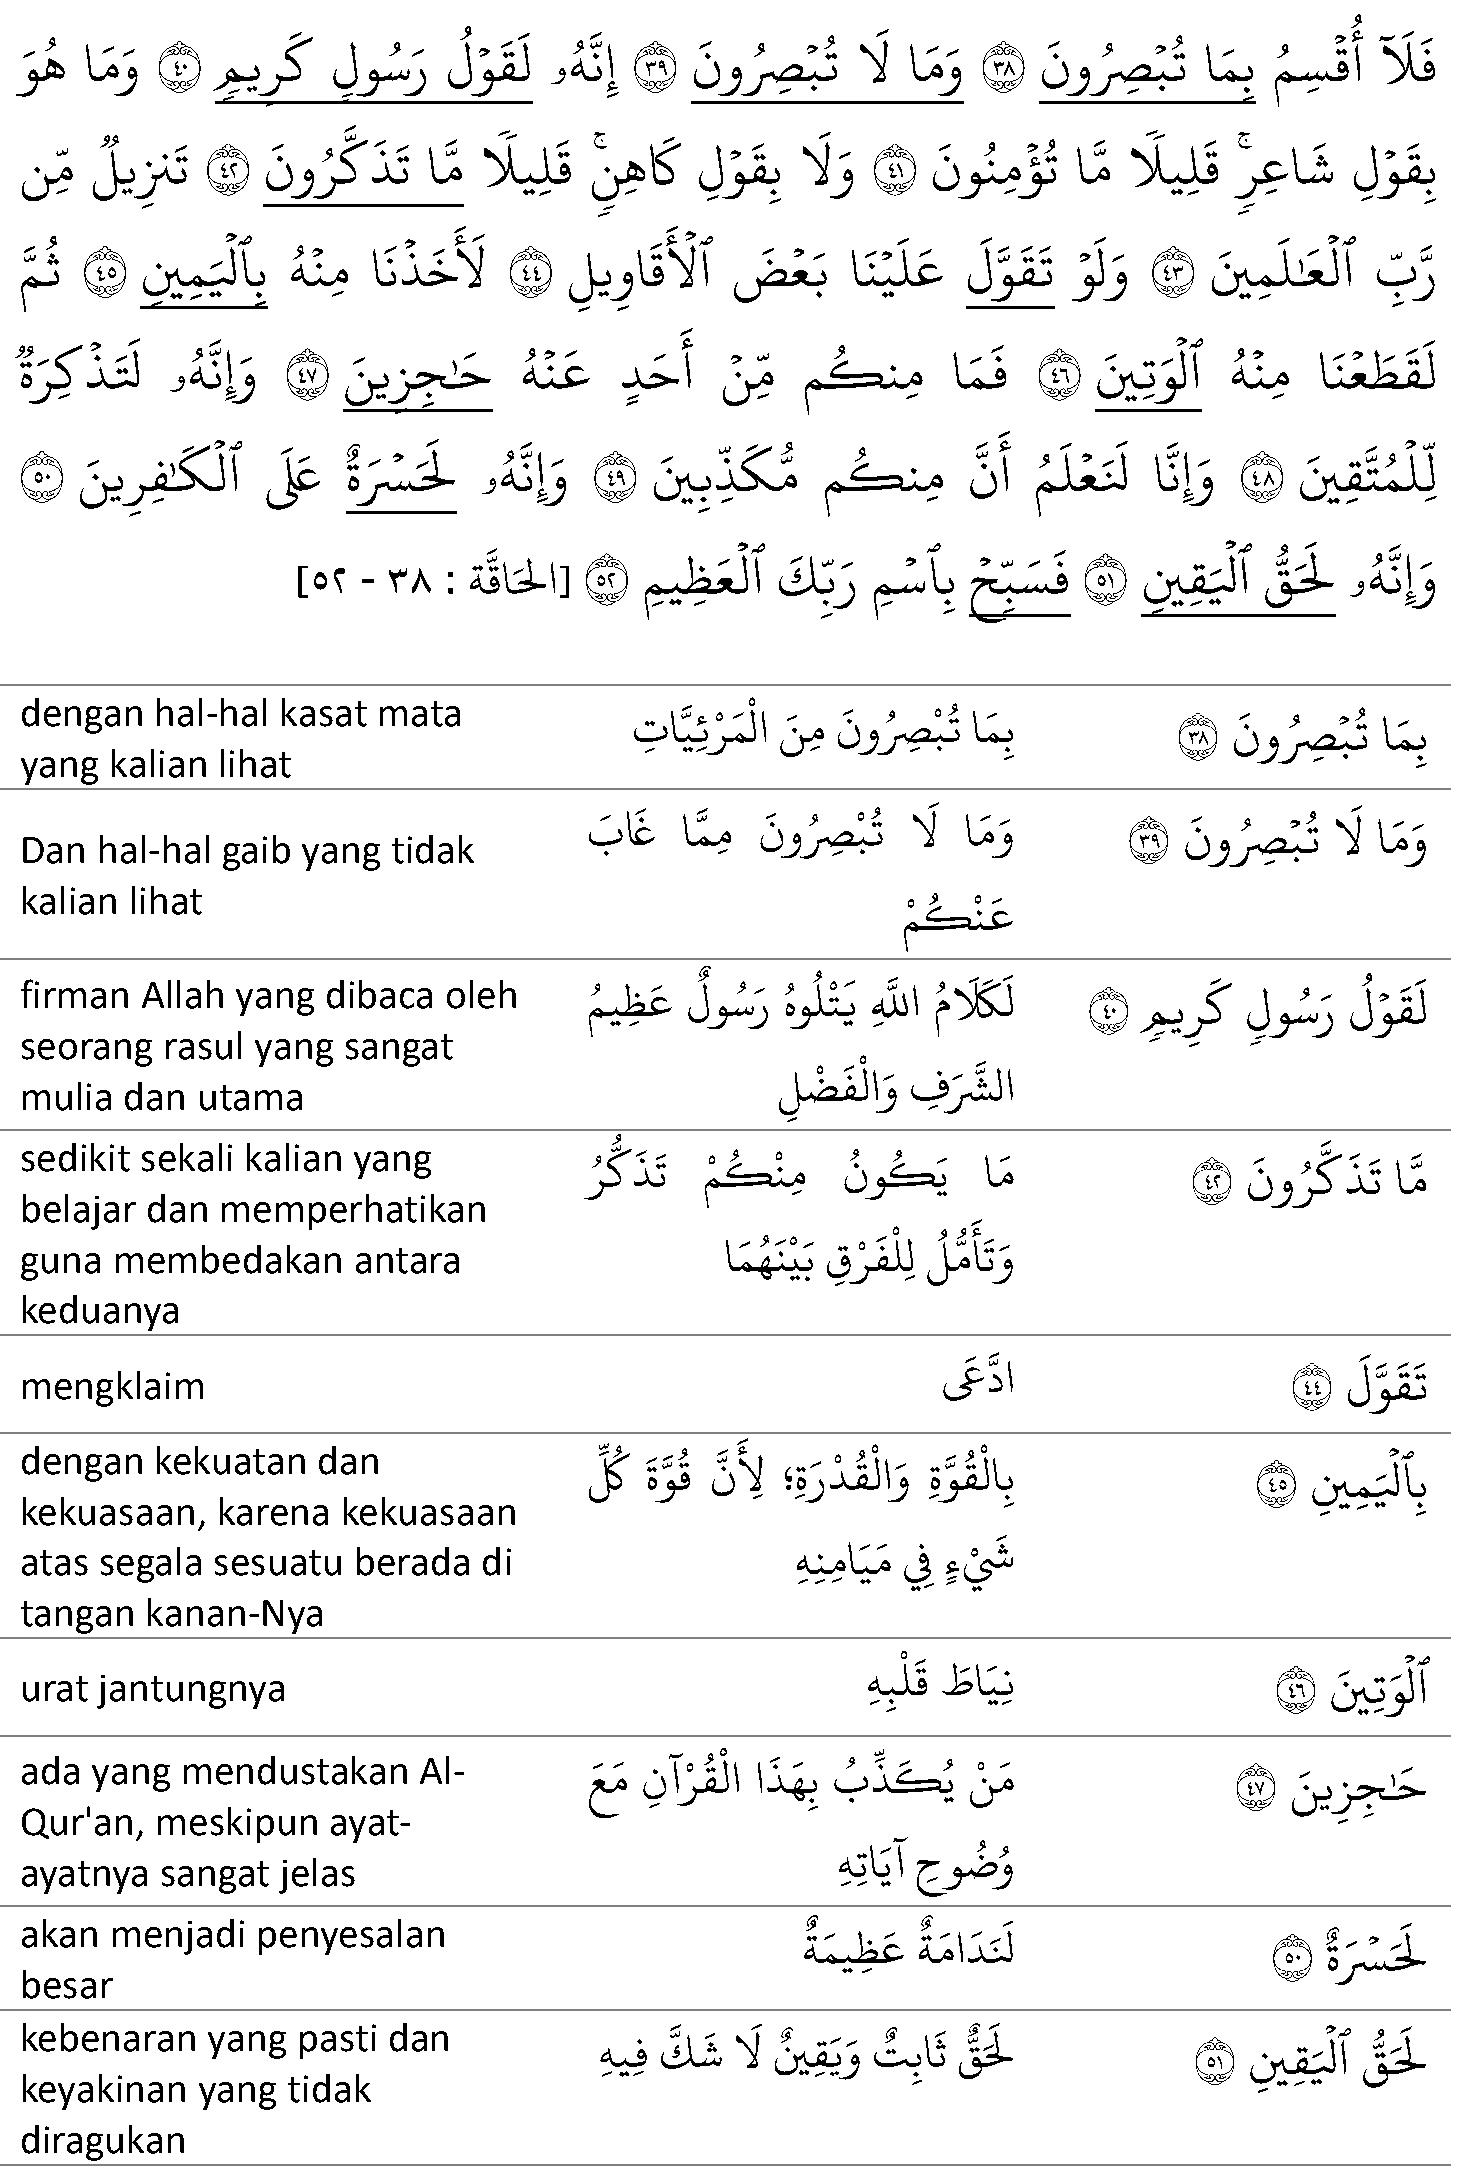 فَلَآ أُقۡسِمُ بِمَا تُبۡصِرُونَ ٣٨ وَمَا لَا تُبۡصِرُونَ ٣٩ إِنَّهُۥ لَقَوۡلُ رَسُولٖ كَرِيمٖ ٤٠ وَمَا هُوَ
بِقَوۡلِ شَاعِرٖۚ قَلِيلٗا مَّا تُؤۡمِنُونَ ٤١ وَلَا بِقَوۡلِ كَاهِنٖۚ قَلِيلٗا مَّا تَذَكَّرُونَ ٤٢ تَنزِيلٞ مِّن
رَّبِّ ٱلۡعَٰلَمِينَ ٤٣ وَلَوۡ تَقَوَّلَ عَلَيۡنَا بَعۡضَ ٱلۡأَقَاوِيلِ ٤٤ لَأَخَذۡنَا مِنۡهُ بِٱلۡيَمِينِ ٤٥ ثُمَّ
لَقَطَعۡنَا مِنۡهُ ٱلۡوَتِينَ ٤٦ فَمَا مِنكُم مِّنۡ أَحَدٍ عَنۡهُ حَٰجِزِينَ ٤٧ وَإِنَّهُۥ لَتَذۡكِرَةٞ
لِّلۡمُتَّقِينَ ٤٨ وَإِنَّا لَنَعۡلَمُ أَنَّ مِنكُم مُّكَذِّبِينَ ٤٩ وَإِنَّهُۥ لَحَسۡرَةٌ عَلَى ٱلۡكَٰفِرِينَ ٥٠
وَإِنَّهُۥ لَحَقُّ ٱلۡيَقِينِ ٥١ فَسَبِّحۡ بِٱسۡمِ رَبِّكَ ٱلۡعَظِيمِ ٥٢ [الحَاقَّة : ٣٨ - ٥٢]
بِمَا تُبۡصِرُونَ ٣٨
بِمَا تُبْصِرُونَ مِنَ الْمَرْئِيَّاتِ
dengan hal-hal kasat mata
yang kalian lihat
وَمَا لَا تُبۡصِرُونَ ٣٩
وَمَا لَا تُبْصِرُونَ مِمَّا غَابَ
عَنْكُمْ
Dan hal-hal gaib yang tidak
kalian lihat
لَقَوۡلُ رَسُولٖ كَرِيمٖ ٤٠
لَكَلَامُ اللَّهِ يَتْلُوهُ رَسُولٌ عَظِيمُ
الشَّرَفِ وَالْفَضْلِ
firman Allah yang dibaca oleh
seorang rasul yang sangat
mulia dan utama
مَّا تَذَكَّرُونَ ٤٢
مَا يَكُونُ مِنْكُمْ تَذَكُّرُ
وَتَأَمُّلُ لِلْفَرْقِ بَيْنَهُمَا
sedikit sekali kalian yang
belajar dan memperhatikan
guna membedakan antara
keduanya
تَقَوَّلَ ٤٤
ادَّعَى
mengklaim
بِٱلۡيَمِينِ ٤٥
بِالْقُوَّةِ وَالْقُدْرَةِ؛ لِأَنَّ قُوَّةَ كُلِّ
شَيْءٍ فِي مَيَامِنِهِ
dengan kekuatan dan
kekuasaan, karena kekuasaan
atas segala sesuatu berada di
tangan kanan-Nya
ٱلۡوَتِينَ ٤٦
نِيَاطَ قَلْبِهِ
urat jantungnya
حَٰجِزِينَ ٤٧
مَنْ يُكَذِّبُ بِهَذَا الْقُرْآنِ مَعَ
وُضُوحِ آيَاتِهِ
ada yang mendustakan Al-
Qur'an, meskipun ayat-
ayatnya sangat jelas
لَحَسۡرَةٌ ٥٠
لَنَدَامَةٌ عَظِيمَةٌ
akan menjadi penyesalan
besar
لَحَقُّ ٱلۡيَقِينِ ٥١
لَحَقٌّ ثَابِتٌ وَيَقِينٌ لَا شَكَّ فِيهِ
kebenaran yang pasti dan
keyakinan yang tidak
diragukan